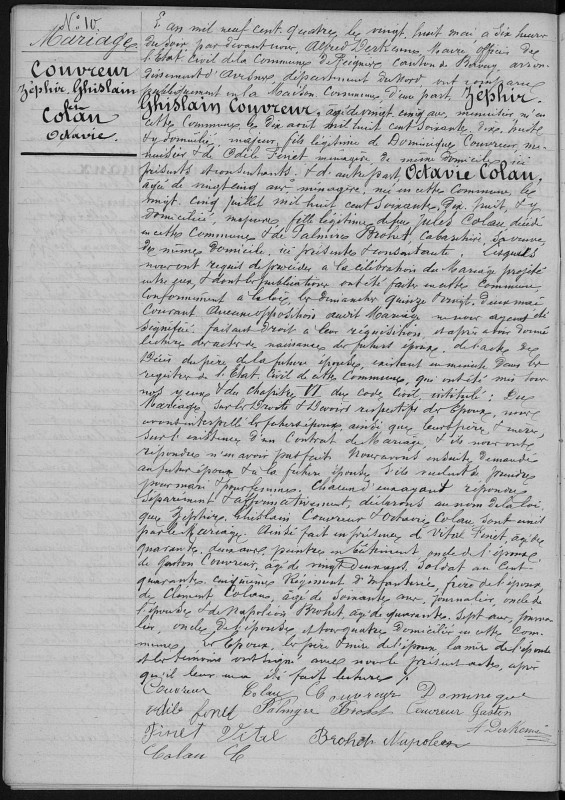 N° 10.
Mariage
Couvreur
Zéphir, Ghislain
&
Colau
Octavie.
L'an mil neuf cent quatre, le vingt huit mai à dix heures
du soir par devant nous, Alfred Derkenne, Maire officier de
l'Etat Civil de la Commune de Feignies, canton de Bavay, arron-
dissement d'Avesnes, département du Nord ont comparu
publiquement en la Maison Commune d'une part Zéphir.
Ghislain Couvreur, âgé de vingt cinq ans, menuisier né en
cette Commune, le dix août mil huit cent soixante dix huit
& y domicilié, majeur, fils légitime de Dominique Couvreur, me-
nuisier & de Odile Finet ménagère de même domicile, ici
présents et consentants. & d'autre part, Octavie Colau,
âgée de vingt cinq ans, ménagère, née en cette Commune, le
vingt cinq juillet mil huit cent soixante dix huit, & y
domiciliée, majeure, fille légitime de feu Jules Colau décédé
en cette Commune & de Palmire Brohet, cabaretière, sa veuve,
du même domicile, ici présente & consentante. Lesquels
nous ont requis de procéder à la célébration du Mariage projeté
entre eux, & dont les publications ont été faites en cette Commune,
conformément à la loi, les dimanches quinze & vingt deux mai
Courant Aucune opposition audit Mariage ne nous ayant été
signifiée faisant droit à leur réquisition, et après avoir donné
lecture des actes de naissance des futurs époux, de l'acte de
décès du père de la future épouse, existant en minute dans les
registres de l'Etat Civil de cette Commune, qui ont été mis sous
nos yeux & du chapitre VI du code civil, intitulé: Du
Mariage, sur les Droits & Devoirs respectifs des Epoux, nous
avons interpellé les futurs époux, ainsi que leurs père & mères,
sur l'existence d'un Contrat de Mariage, & ils nous ont
répondu n'en avoir point fait. Nous avons ensuite demandé
au futur époux & à la future épouse s'ils veulent se prendre
pour mari & pour femme, Chacun d'eux ayant répondu
séparément & affirmativement, déclarons au nom de la loi,
que Zéphir, Ghislain Couvreur & Octavie Colau, sont unis
par le Mariage. Ainsi fait en présence de Vital Finet, âgé de
quarante deux ans, peintre en bâtiment, oncle de l'époux,
de Gaston Couvreur, âgé de vingt deux ans, soldat au Cent
quarante cinquième Régiment d'Infanterie, frère de l'époux,
de Clément Colau, âgé de soixante ans, journalier, oncle de
l'épouse & de Napoléon Brohet, âgé de quarante sept ans, journa-
lier, oncle de l'épouse, et tous quatre Domiciliés en cette Com-
mune, les Epoux, les père & mère de l'époux, la mère de l'épouse
et les témoins ont signé avec nous le présent acte, après
qu'il leur en a été fait lecture.
Couvreur Colau Couvreur Dominique
odile finet Palmyre Brohet Couvreur Gaston
Finet Vital Brohet Napoléon A Derkenne
Colau C